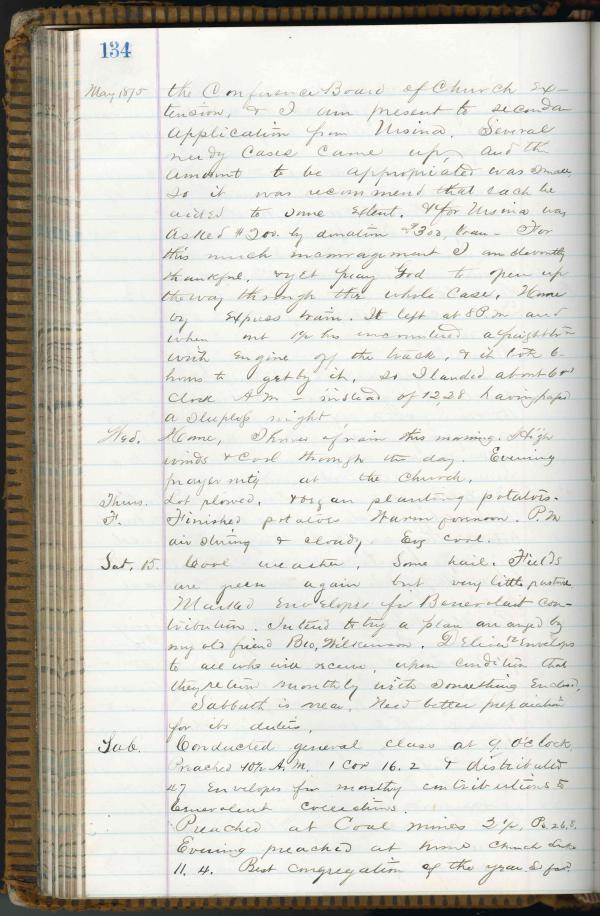 134
May 1875 the Conference Board of Church Ex-
tension, & I am present to second an
application from Ursina. Several
needy cases came up, and the
amount to be appropriated was small,
so it was recommend that each be
aided to some extent. & for Ursina was
asked $200. by donation & $300, loan - For
this much encouragement I am devoutly
thankful. & yet pray God to open up
the way through the whole case. Home
by Express train. It left at 8 P.M and
when out 1½ hrs encountered a freight
with Engine off the track, & it took 6
hours to get by it, so I landed about 6 o
clock A M - instead of 12,28 having passed
a sleepless night
Wed. Home, Shows of rain this morning. High
winds & cool through the day. Evening
prayer mtg at the church.
Thurs. Lot plowed. & began planting potatoes.
F. Finished potatoes Warm forenoon. P.M
air string & cloudy Evg cool.
Sat. 15. Cool weather, Some hail. Fields
are green again but very little pasture
Marked Envelopes for Benevolent con-
tribution. Intend to try a plan arranged by
my old friend Bro, Wilkinson. Deliver 12 Envelops
to all who will receive, upon condition that
they return monthly with something Enclosd,
Sabbath is near. Need better preparation
for its duties.
Sab. Conducted general class at 9 O'clock,
Preached 10½ A.M. 1 Cor 16.2 & distributed
47 Envelopes for monthly contributions to
Benevolent collections.
Preached at Coal mines 3 P. Ps. 26.8.
Evening preached at home church Luke
11. 4. Best congregation of the year so far.